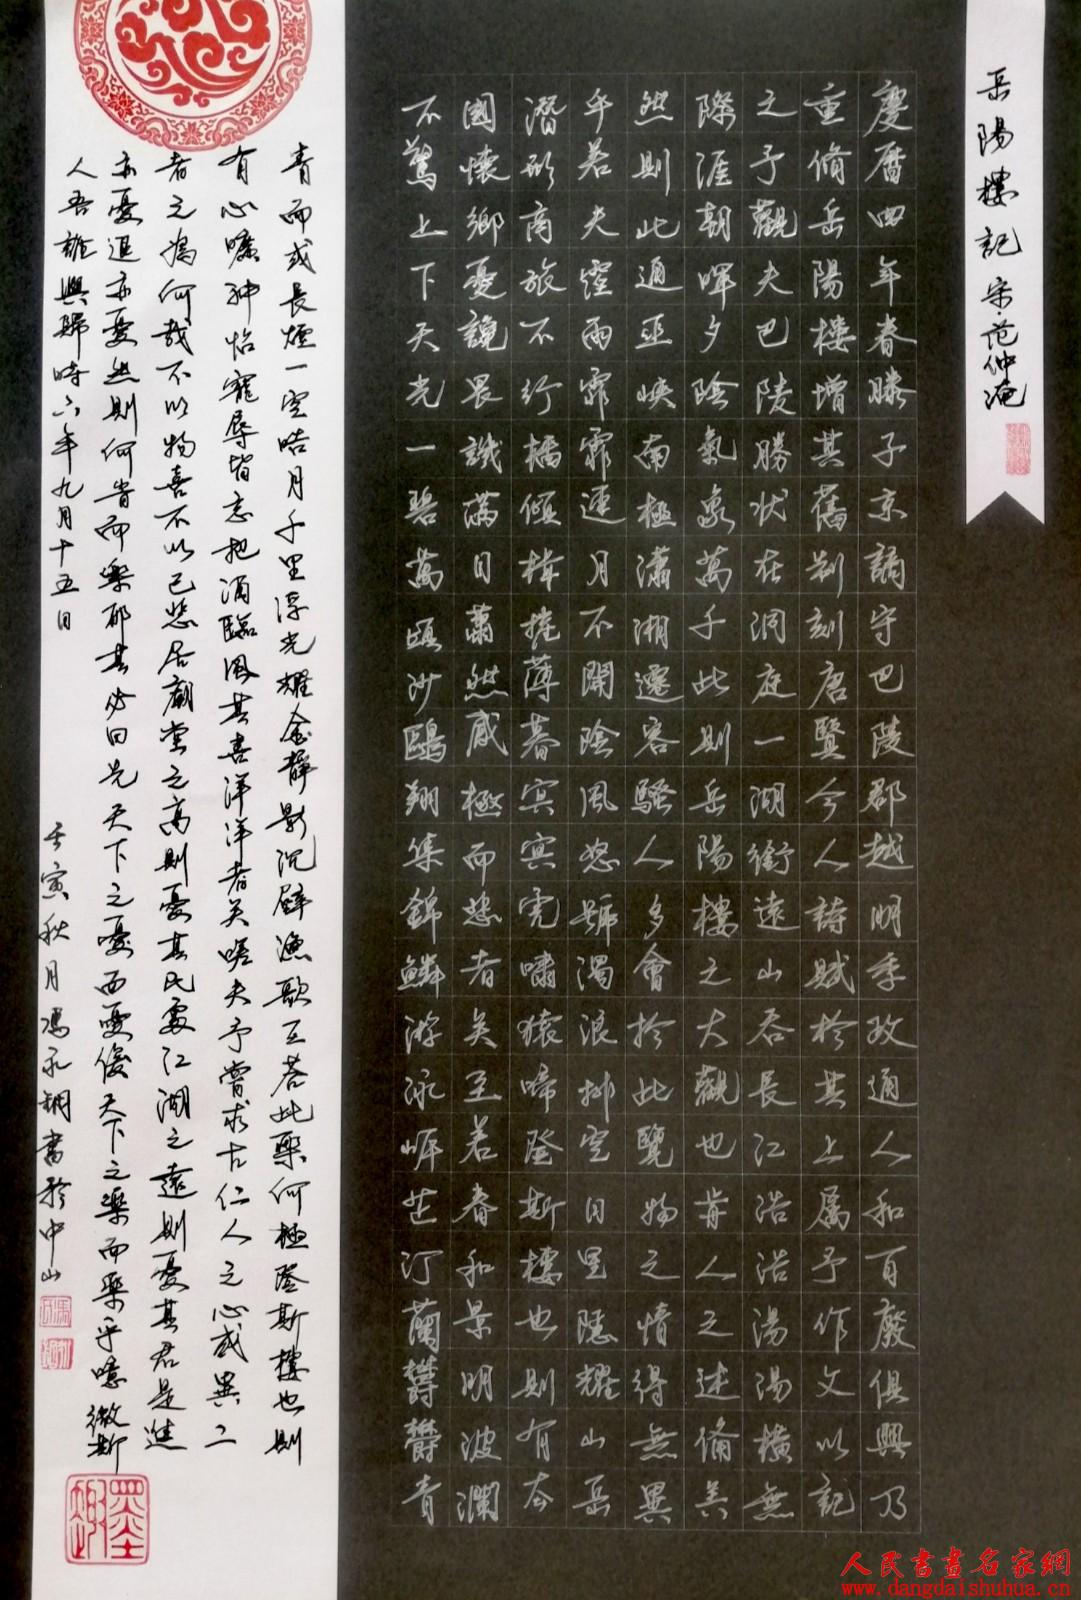 岳陽樓記 宋·范仲淹
慶曆四年春滕子京謫守巴陵郡越明季政通人和百廢俱興乃
重脩岳陽樓增其舊制刻唐賢今人詩賦於其上属予作文以記
之予觀夫巴陵勝狀在洞庭一湖銜遠山吞長江浩浩湯湯橫無
際涯朝暉夕陰氣象萬千此則岳陽樓之大觀也前人之述俻矣
然則此通巫峽南極瀟湘遷客騷人多會於此覽物之情得無異
乎若夫霪雨霏霏連月不開陰風怒號濁浪排空日星隱耀山岳
潛形商旅不行檣傾楫摧薄暮冥冥虎嘯猿啼登斯樓也則有去
國懷鄉憂讒畏譏滿目蕭然感極而悲者矣至若春和景明波瀾
不驚上下天光一碧萬頃沙鷗翔集錦鱗游泳岸芷汀蘭欝欝青
青而或長煙一空皓月千里浮光耀金靜影沉璧漁歌互荅此樂何極登斯樓也則
有心曠神怡寵辱皆忘把酒臨風其喜洋洋者矣嗟夫予嘗求古仁人之心或異二
者之為何哉不以物喜不以己悲居廟堂之高則憂其民處江湖之遠則憂其君是進
亦憂退亦憂然則何昔而樂耶其必曰先天下之憂而憂後天下之樂而樂乎噫微斯
人吾誰與歸時六年九月十五日
壬寅秋月馮永鋼書於中山
墨趣
人民書畫名家網
www.dangdaishuhua.cn